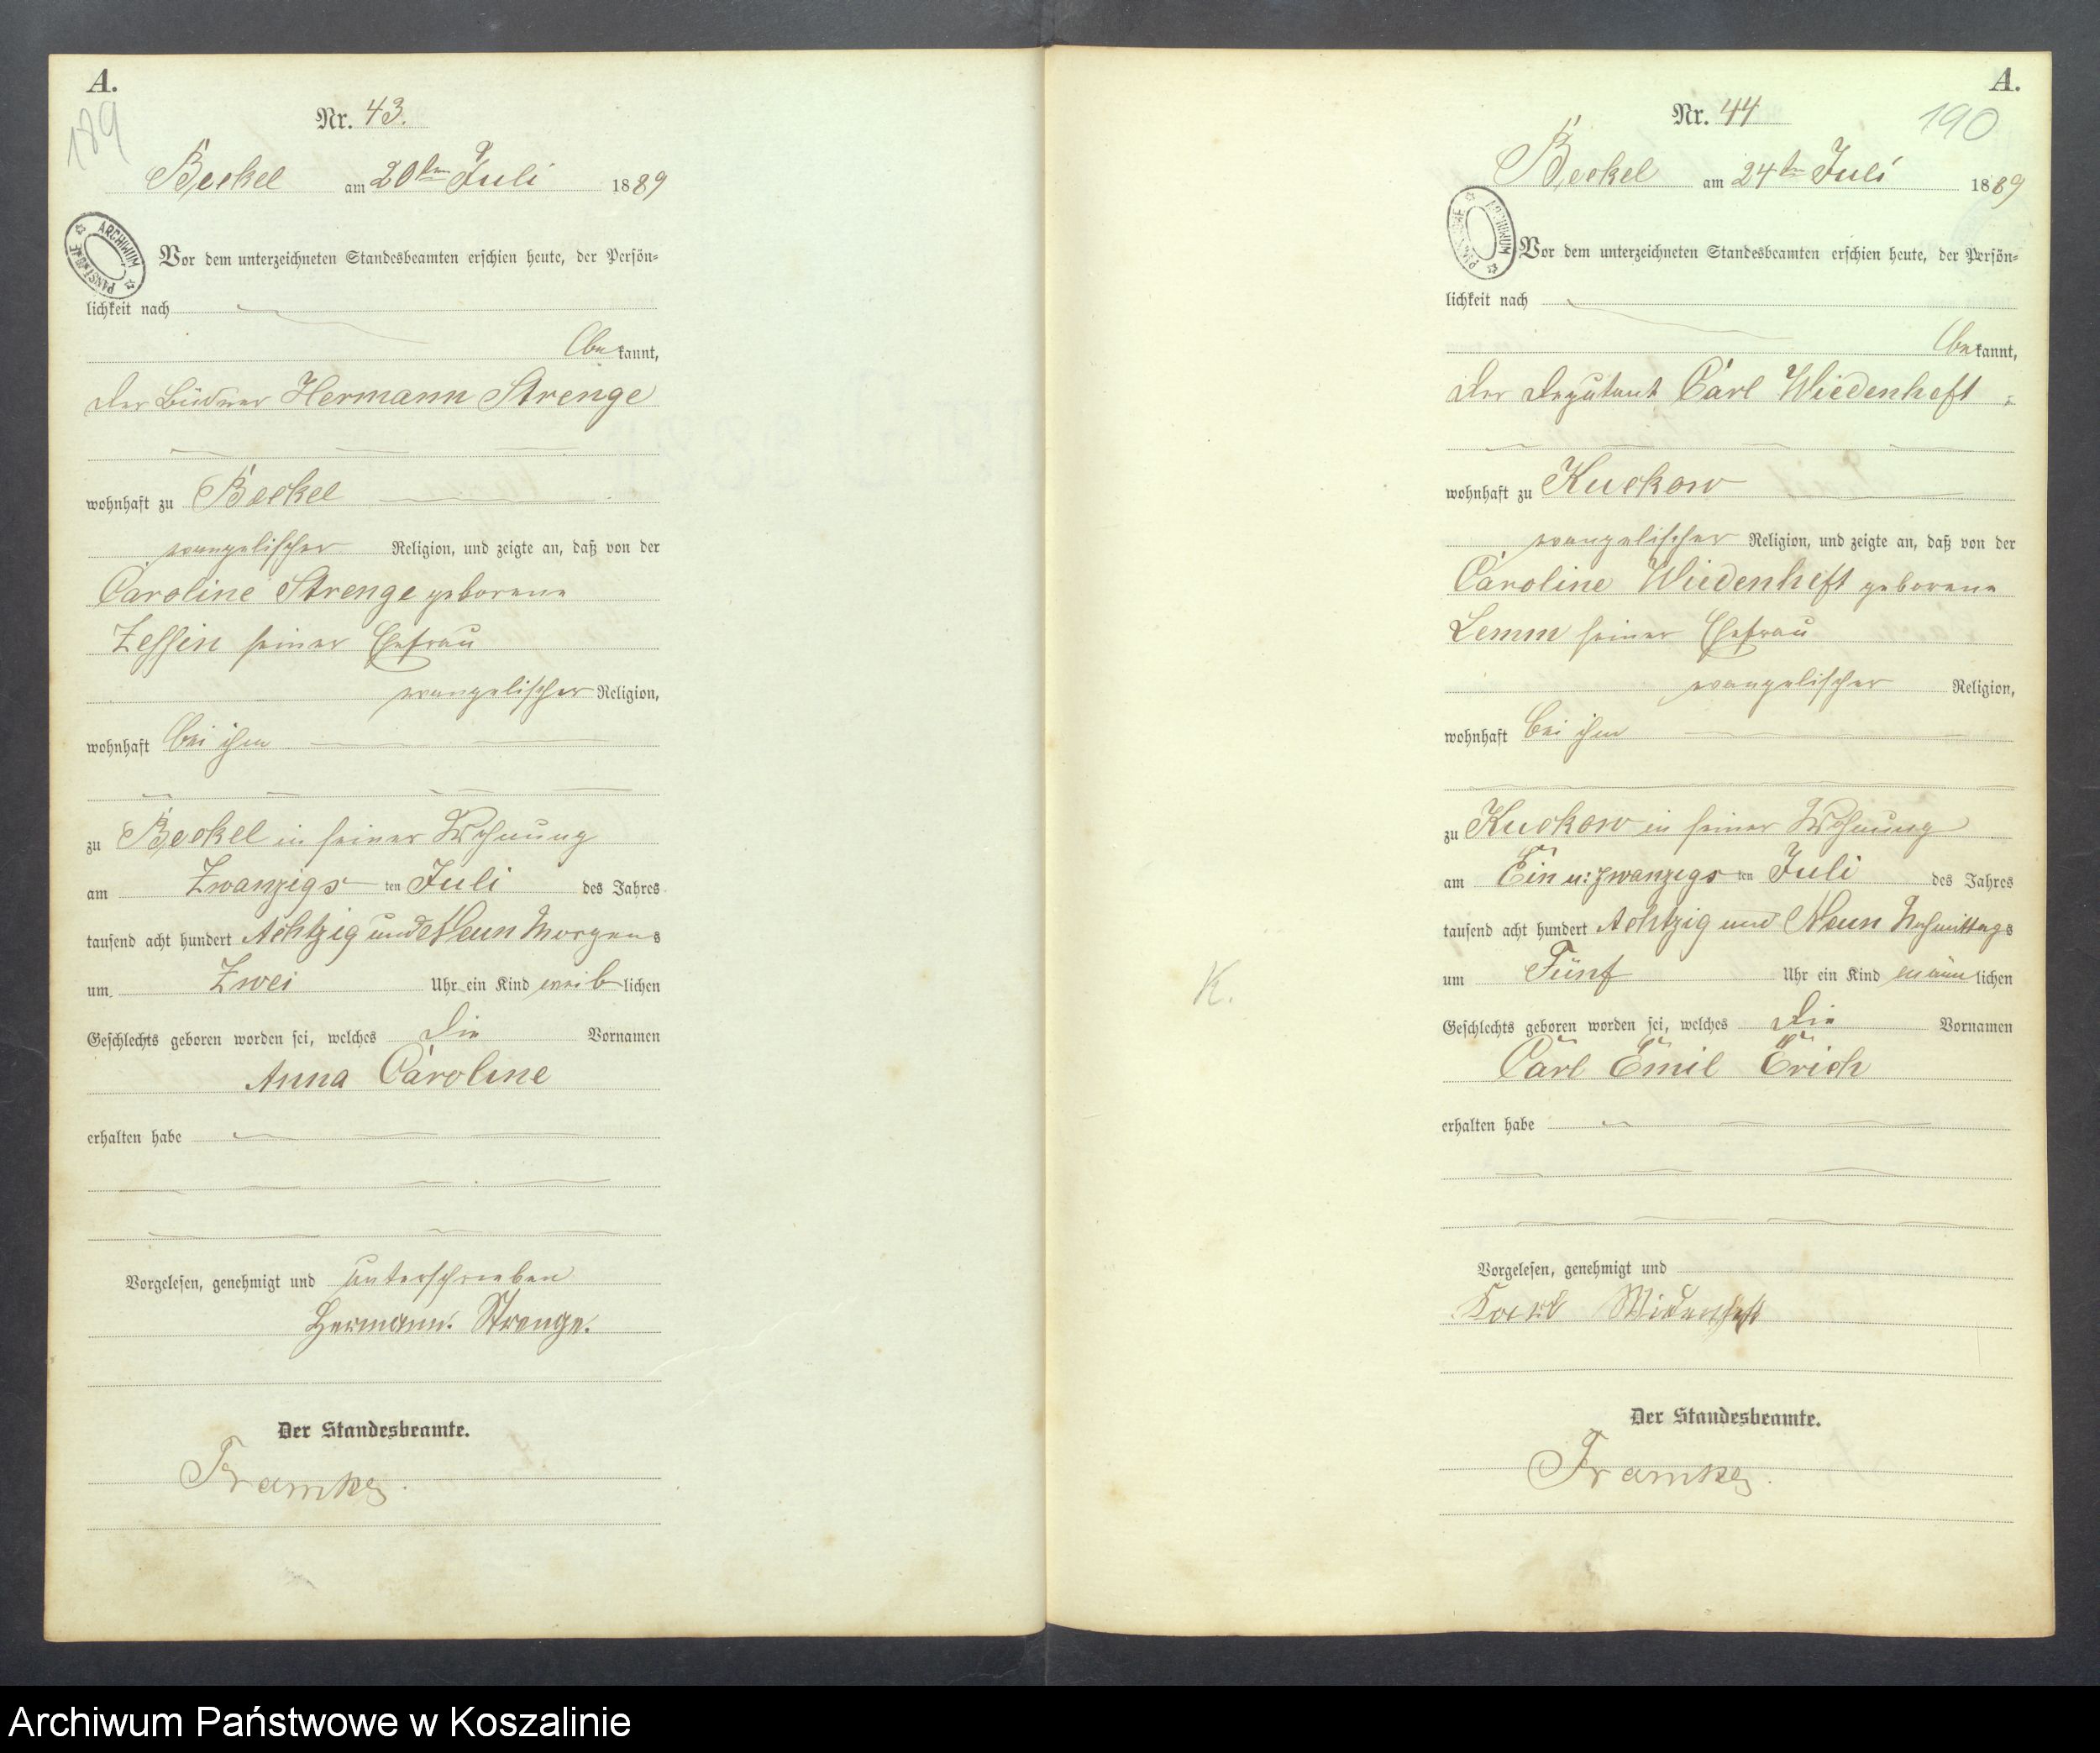 A.
189
Nr. 43.
Beckel am 20ten Juli 1889
ARCHIWUM PAŃSTWOWE
Vor dem unterzeichneten Standesbeamten erschien heute, der Persön-
lichkeit nach
bekannt,
der Büdner Hermann Strenge
wohnhaft zu Beckel
evangelischer Religion, und zeigte an, daß von der
Caroline Strenge geborene
Zessin seiner Ehefrau
evangelischer Religion,
wohnhaft bei ihm
zu Beckel in seiner Wohnung
am Zwanzigs ten Juli des Jahres
tausend acht hundert Achtzig und Neun Morgens
um Zwei Uhr ein Kind weiblichen
Geschlechts geboren worden sei, welches die Vornamen
Anna Caroline
erhalten habe
Vorgelesen, genehmigt und unterschrieben
Hermann. Strenge.
Der Standesbeamte.
Framke.
A.
190
Nr. 44
Beckel am 24ten Juli 1889
ARCHIWUM PAŃSTWOWE
Vor dem unterzeichneten Standesbeamten erschien heute, der Persön-
lichkeit nach
bekannt,
der Deputant Carl Wiedenheft
wohnhaft zu Kuckow
evangelischer Religion, und zeigte an, daß von der
Caroline Wiedenheft geborene
Lemm seiner Ehefrau
evangelischer Religion,
wohnhaft bei ihm
zu Kuckow in seiner Wohnung
am Ein u: zwanzigs ten Juli des Jahres
tausend acht hundert Achtzig und Neun Nachmittags
um Fünf Uhr ein Kind männlichen
K.
Geschlechts geboren worden sei, welches die Vornamen
Carl Emil Erich
erhalten habe
Vorgelesen, genehmigt und
Der Standesbeamte.
Framke.
Archiwum Państwowe w Koszalinie